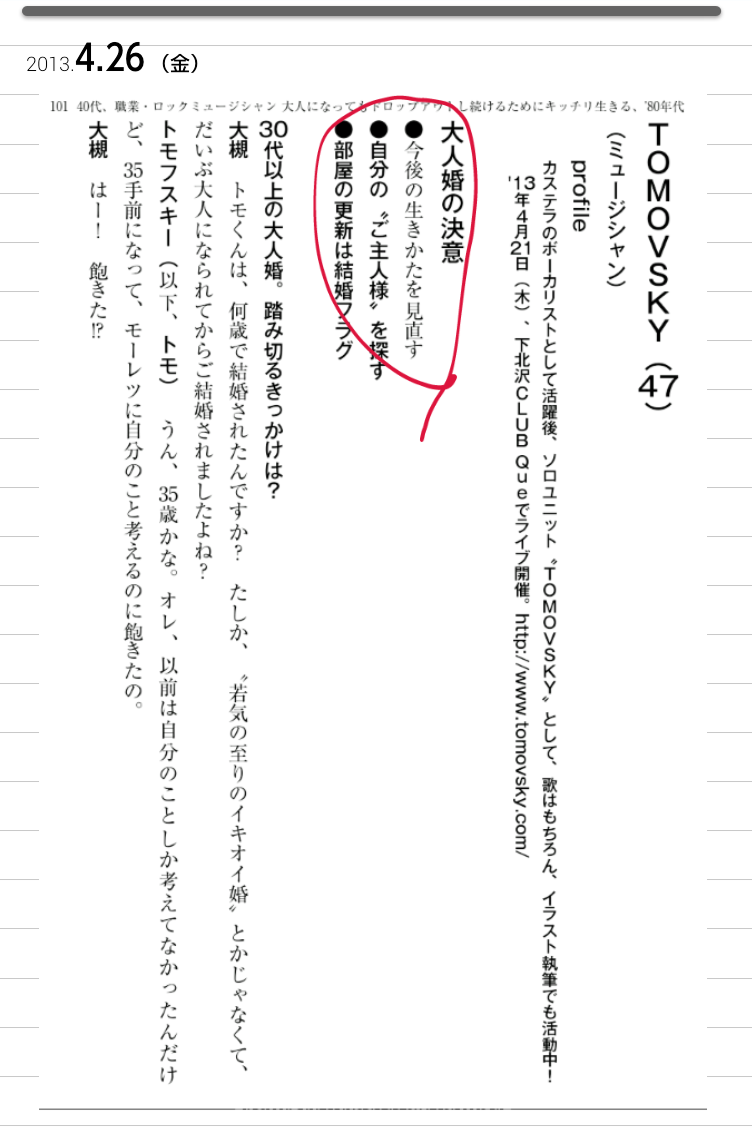 2013.4.26（金）
101 40代、職業・ロックミュージシャン 大人になってもドロップアウトし続けるためにキッチリ生きる、'80年代
TOMOVSKY（47）
（ミュージシャン）
profile
カステラのボーカリストとして活躍後、ソロユニット〝TOMOVSKY〟として、歌はもちろん、イラスト執筆でも活動中！
'13年4月21日（木）、下北沢CLUB Queでライブ開催。http://www.tomovsky.com/
大人婚の決意
●今後の生きかたを見直す
●自分の〝ご主人様〟を探す
●部屋の更新は結婚フラグ
30代以上の大人婚。踏み切るきっかけは？
大槻　トモくんは、何歳で結婚されたんですか？　たしか、〝若気の至りのイキオイ婚〟とかじゃなくて、
だいぶ大人になられてからご結婚されましたよね？
トモフスキー（以下、トモ）　うん、35歳かな。オレ、以前は自分のことしか考えてなかったんだけ
ど、35手前になって、モーレツに自分のこと考えるのに飽きたの。
大槻　はー！　飽きた!?